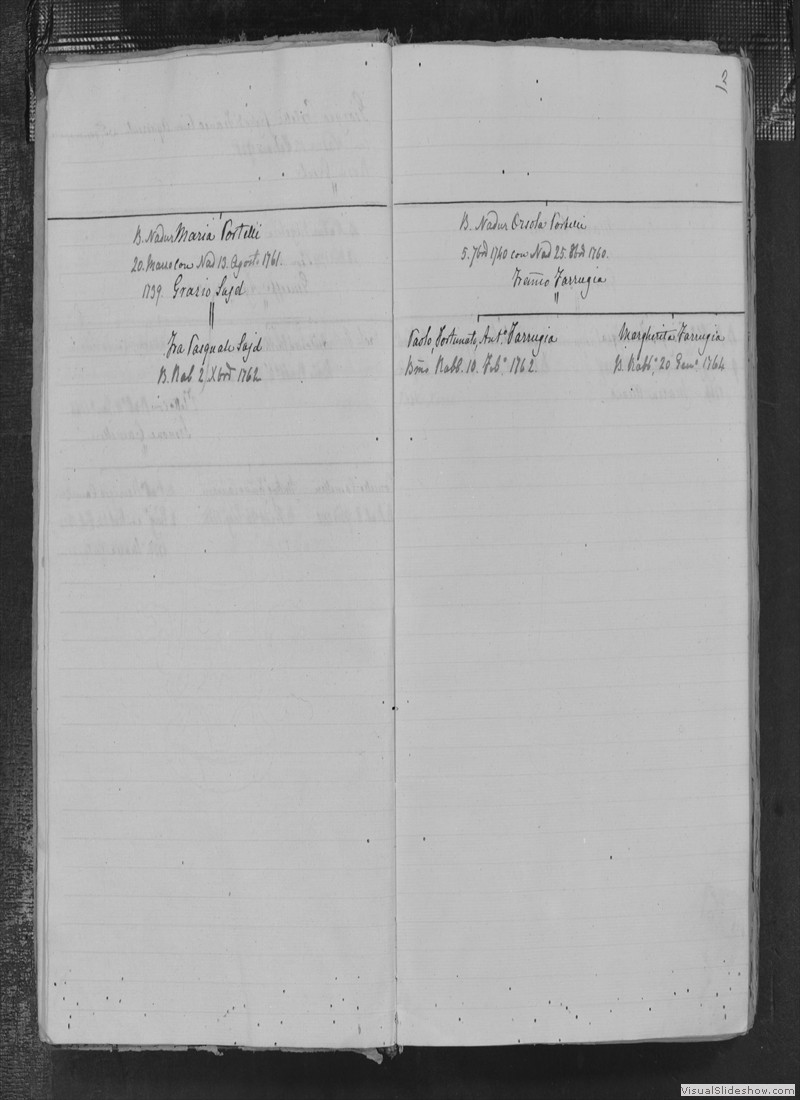 12
B. Nadur Maria Portelli
20. Marzo con Nad 13. Agosto 1761.
1739. Grazio Sajd
Fra Pasquale Sajd
B. Rab 2 Xbre 1762
B. Nadur Orsola Portelli
5. 7bre 1740 con Nad 25. 8bre 1760.
Farrugia
Paolo, Fortunato, Ant.o Farrugia
Rabb. 10. Feb.o 1762.
Margherita Farrugia
B. Rabb.o 20 Gen.o 1764
VisualSlideshow.com